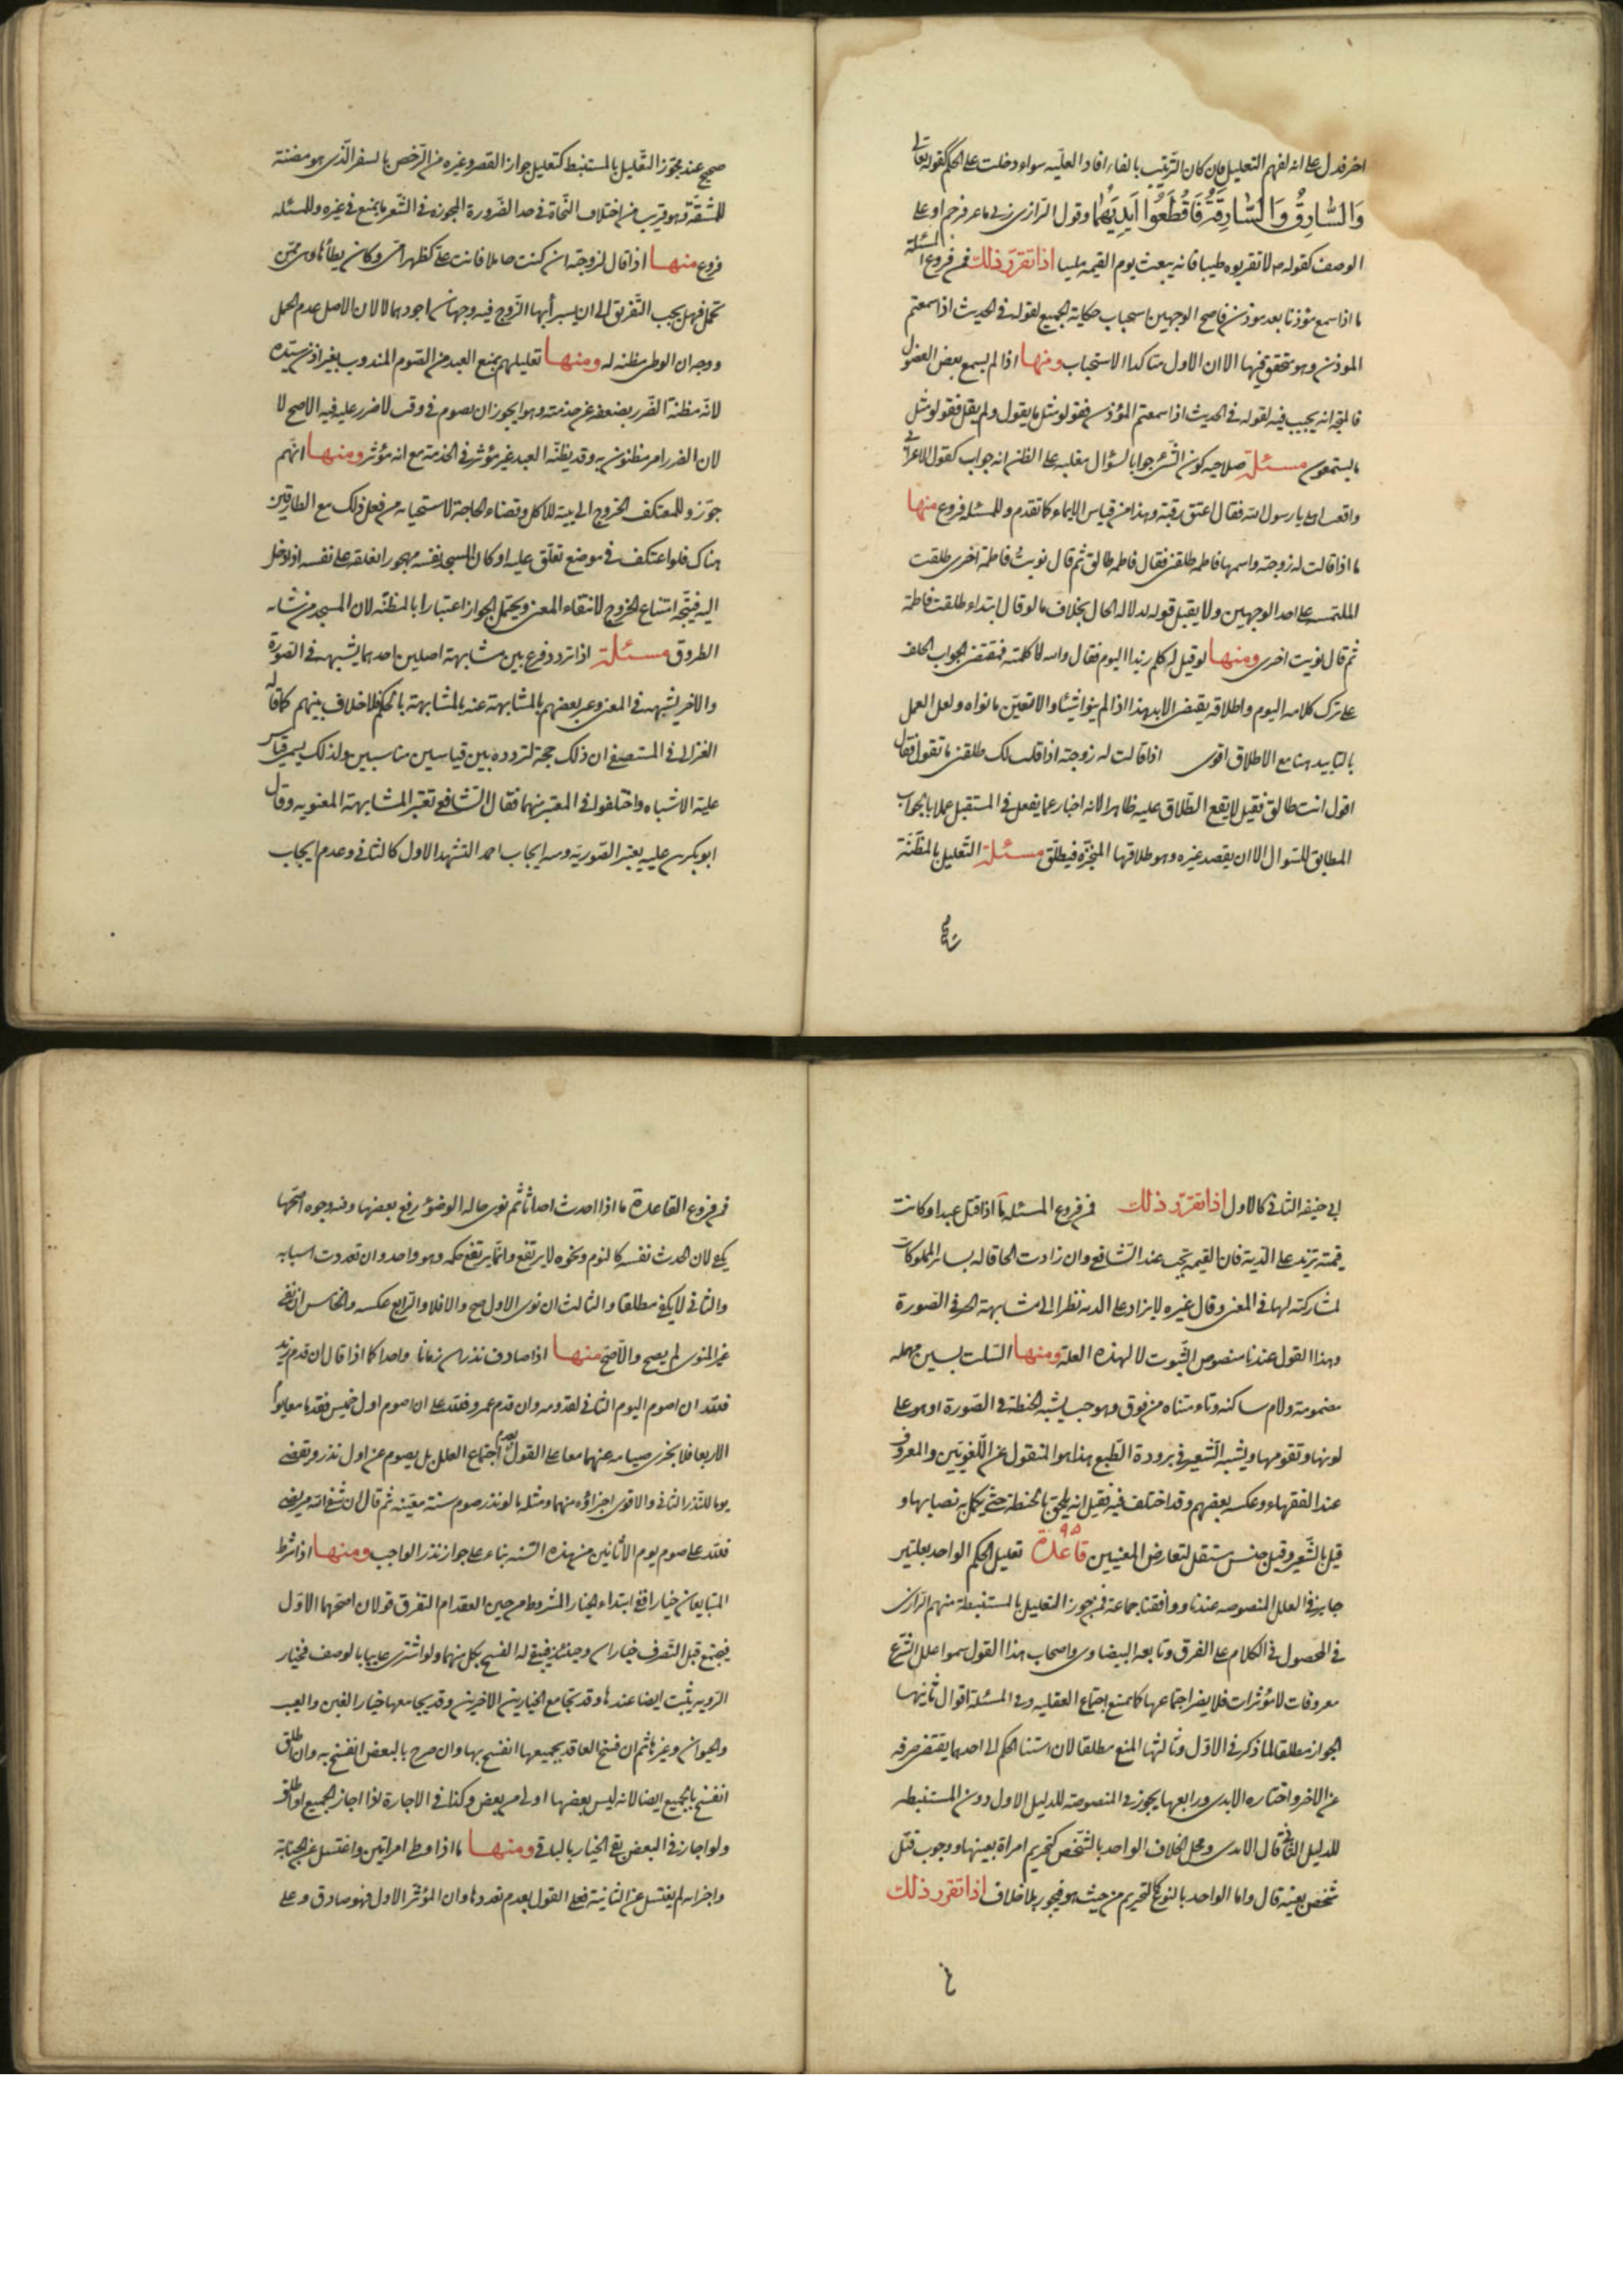 اخر فدل على انه لفهم التعليل فان كان الترتيب بالفاء افاد العلّيه سواء دخلت على الحكم كقوله تعالى
وَالسَّارِقُ وَالسَّارِقَةُ فَاقْطَعُوا أَيْدِيَهُمَا وقول الرّازى زنى ماعز فرجم او على
الوصف كقوله ص لا تقربوه طيبا فانه يبعث يوم القيمة ملبيا اذا تقرّر ذلك فمن فروع المسئلة
ما اذا سمع مؤذنا بعد موذن فاصح الوجهين استحباب حكاية الجميع لقوله في الحديث اذا سمعتم
الموذن وهو متحقق فيها الا ان الاول متاكد الاستحباب ومنها اذا لم يسمع بعض الفصول
فالمتجه انه يجيب فيه لقوله في الحديث اذا سمعتم المؤذن فقولوا مثل ما يقول ولم يقل فقولوا مثل
ما يستمعون مسئلة صلاحيه كون الشئ جوابا لسؤال مغلبه على الظن انه جواب كقول الاعرابي
واقعت اهلي يا رسول الله فقال اعتق رقبة وهذا من قياس الايماء كما تقدم وللمسئلة فروع منها
ما اذا قالت له زوجته واسمها فاطمه طلقني فقال فاطمه طالق ثم قال نويت فاطمة اخرى طلقت
الملتمسه على احد الوجهين ولا يقبل قوله لدلاله الحال بخلاف ما لو قال ابتداء طلقت فاطمة
ثم قال نويت اخرى ومنها لو قيل له كلم زيدا اليوم فقال والله لا كلمته فمقتضى الجواب الحلف
على ترك كلامه اليوم واطلاقه يقتضى الابد هذا اذا لم ينو شيئا والا تعيّن ما نواه ولعل العمل
بالتابيد هنا مع الاطلاق اقوى اذا قالت له زوجته اذا قلت لك طلقنى ما تقول فقال
اقول انت طالق فقيل لا يقع الطّلاق عليه ظاهرا لانه اخبار عما يفعل في المستقبل عملا بالجواب
المطابق للسّوال الا ان يقصد غيره وهو طلاقها المنجّزة فيطلّق مسئلة التّعليل بالمظنّة
صحيح عند مجوّز التّعليل بالمستنبط كتعليل جواز القصر وغيره من الرّخص بالسفر الّذى هو مضنة
للمشقّة وهو قريب من اختلاف النّحاة في حد الضّرورة المجوزه في الشّعر ما يمنع في غيره وللمسئله
فروع منها اذا قال لزوجته ان كنت حاملا فانت علىّ كظهر امّى وكان يطأها وهى ممّن
تحمل فهل يجب التّفريق الى ان يستبرأ بها الزّوج فيه وجهان اجودهما لا لان الاصل عدم الحمل
ووجه ان الوطى مظنه له ومنها تعليلهم بمنع العبد من الصّوم المندوب بغير اذن سيّده
لانّه مظنة الضّرر بضعفه عن خدمته وهو ايجوز ان يصوم في وقت لا ضرر عليه فيه الاصح لا
لان الضرر امر مظنون به وقد يظنّه العبد غير مؤثر في الخدمة مع انه مؤثر ومنها انّهم
جوّزو للمعتكف الخروج الى بيته للاكل وقضاء الحاجة لاستحيائه من فعل ذلك مع الطارقين
هناك فلو اعتكف في موضع تغلّق عليه او كان المسجد نفسه مهجورا فغلقه على نفسه اذا دخل
اليه فيتّجه امتناع الخروج لانتفاء المعنى ويحتمل الجواز اعتبارا بالمظنّة لان المسجد من شانه
الطروق مسئلة اذا تردد فرع بين مشابهة اصلين احدهما يشبهه في الصّورة
والاخر يشبهه في المعنى وعبر بعضهم بالمشابهة عنه بالمشابهة بالحكم فلا خلاف بينهم كما قاله
الغزالى في المستصفى ان ذلك حجة لتردده بين قياسين مناسبين ولذلك يسمى قياس
علية الاشباه واختلفوا في المعتبر منهما فقال الشّافعى تعتبر المشابهة المعنويه وقال
ابو بكر بن علية يعتبر الصّوريّه ومنه ايجاب احمد التشهد الاول كالثانى وعدم ايجاب
ابى حنيفه الثانى كالاول اذا تقرّر ذلك فمن فروع المسئله ما اذا قتل عبدا وكانت
قيمته تزيد على الدّية فان القيمه تجب عند الشّافعى وان زادت الحاقا له بسائر المملوكات
لمشاركته لها في المعنى وقال غيره لا يزاد على الديه نظرا الى مشابهة الحر في الصّورة
وهذا القول عندنا منصوص الثّبوت لا لهذه العلّة ومنها السّلت بسين مهمله
مضمومة ولام ساكنه وتاء مثناه من فوق وهو حب يشبه الحنطة في الصّورة اوهو على
لونها وتقومها ويشبه الشّعير في برودة الطّبع هذا هو المنقول عن اللّغويّين والمعروف
عند الفقهاء وعكسه بعضهم وقد اختلف فيه فقيل انه يلحق بالحنطة حتّى يكمل به نصابها و
قيل بالشّعير وقيل جنس مستقل لتعارض المعنيين قاعدة ٩٥ تعليل الحكم الواحد بعلّتين
جايز في العلل المنصوصه عندنا ووافقنا جماعة فمن جوز التعليل بالمستنبطة منهم الرّازى
في المحصول في الكلام على الفرق وتابعه البيضاوى واصحاب هذا القول سموا علل الشّرع
معرفات لا مؤثرات فلا يضر اجتماعها كما يمنع اجتماع العقليه وفى المسئلة اقوال ثانيها
الجواز مطلقا لما ذكر في الاوّل وثالثها المنع مطلقا لان استنا الحكم الى احدهما يقتضى صرفه
عن الاخر واختاره الامدى ورابعها يجوز في المنصوصة للدليل الاول دون المستنبطه
للدليل الثّانى قال الامدى ومحل الخلاف الواحد بالشّخص كتحريم امراة بعينها ووجوب قتل
شخص بعينه قال واما الواحد بالنوع كالتحريم من حيث هو فيجوز بلا خلاف اذا تقرر ذلك
فمن فروع القاعدة ما اذا احدث احداثا ثم نوى حاله الوضوء رفع بعضها وفيه وجوه اصحّها
يكفى لان الحدث نفسه كالنوم ونحوه لا يرتفع وانّما يرتفع حكمه وهو واحد وان تعددت اسبابه
والثانى لا يكفى مطلقا والثالث ان نوى الاول صح والا فلا والرّابع عكسه والخامس ان نفى
غير المنوى لم يصح والا صحّ منها اذا صادف نذران زمانا واحدا كما اذا قال ان قدم زيد
فلله ان اصوم اليوم الثانى لقدومه وان قدم عمرو فلله على ان اصوم اول خميس فقدما معا يوم
الاربعا فلا يجزى صيامه عنهما معا على القول بعدم اجتماع العلل بل يصوم عن اول نذر ويقضى
يوما للنّذر الثانى والاقوى اجزاؤه منهما ومثله ما لو نذر صوم سنة معيّنه ثم قال ان شفى الله مريضى
فلله على صوم يوم الاثانين من هذه السّنه بناء على جواز نذر الواجب ومنها اذا شرط
المتبايعان خيارا ففي ابتداء الخيار المشروط من حين العقد ام التفرق قولان اصحّهما الاوّل
فيجتمع قبل التّفرق خياران وحينئذ فيبقى له الفسخ بكل منهما ولو اشترى غايبا بالوصف فخيار
الرّويه يثبت ايضا عندنا وقد يجامع الخيارين الاخرين وقد يجامعها خيار الغبن والعيب
والحيوان وغيرها ثم ان فسخ العاقد بجميعها انفسخ بها وان صرح بالبعض انفسخ به وان اطلق
انفسخ بالجميع ايضا لانه ليس بعضها اولى من بعض وكذا في الاجازة لو اجاز الجميع او اطلق
ولو اجاز في البعض بقى الخيار بالباقى ومنها ما اذا وطى امراتين واغتسل عن الجنابة
واخبر انه لم يغتسل عن الثانية فعلى القول بعدم تعددها وان المؤثر الاول فهو صادق وعلى